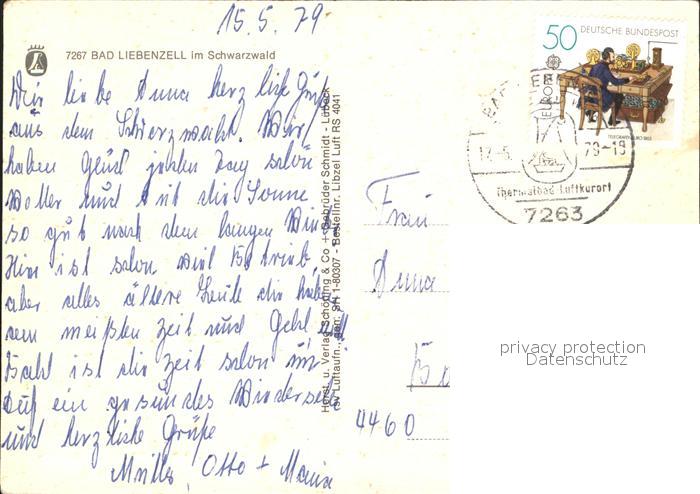 15.5.79
7267 BAD LIEBENZELL im Schwarzwald
Wir liebe Anna herzliche Grüße
aus dem Schwarzwald. Wir
haben jeden Tag schön
Wetter und tut die Sonne
so gut nach dem langen
Hier ist schon viel Betrieb,
aber alles ältere Leute die haben
am meißten Zeit und Geld
Bald ist die Zeit schon um
Auf ein gesundes Wiedersehn
und herzliche Grüße
Otto + Maria
Horst. u. Verlag Schöning & Co + Gebrüder Schmidt - Lübeck
Bestellnr. Libzel Luft RS 4041
50 DEUTSCHE BUNDESPOST
EUROPA
79-18
Thermalbad-Luftkurort
7263
Frau
Anna
4460
privacy protection
Datenschutz